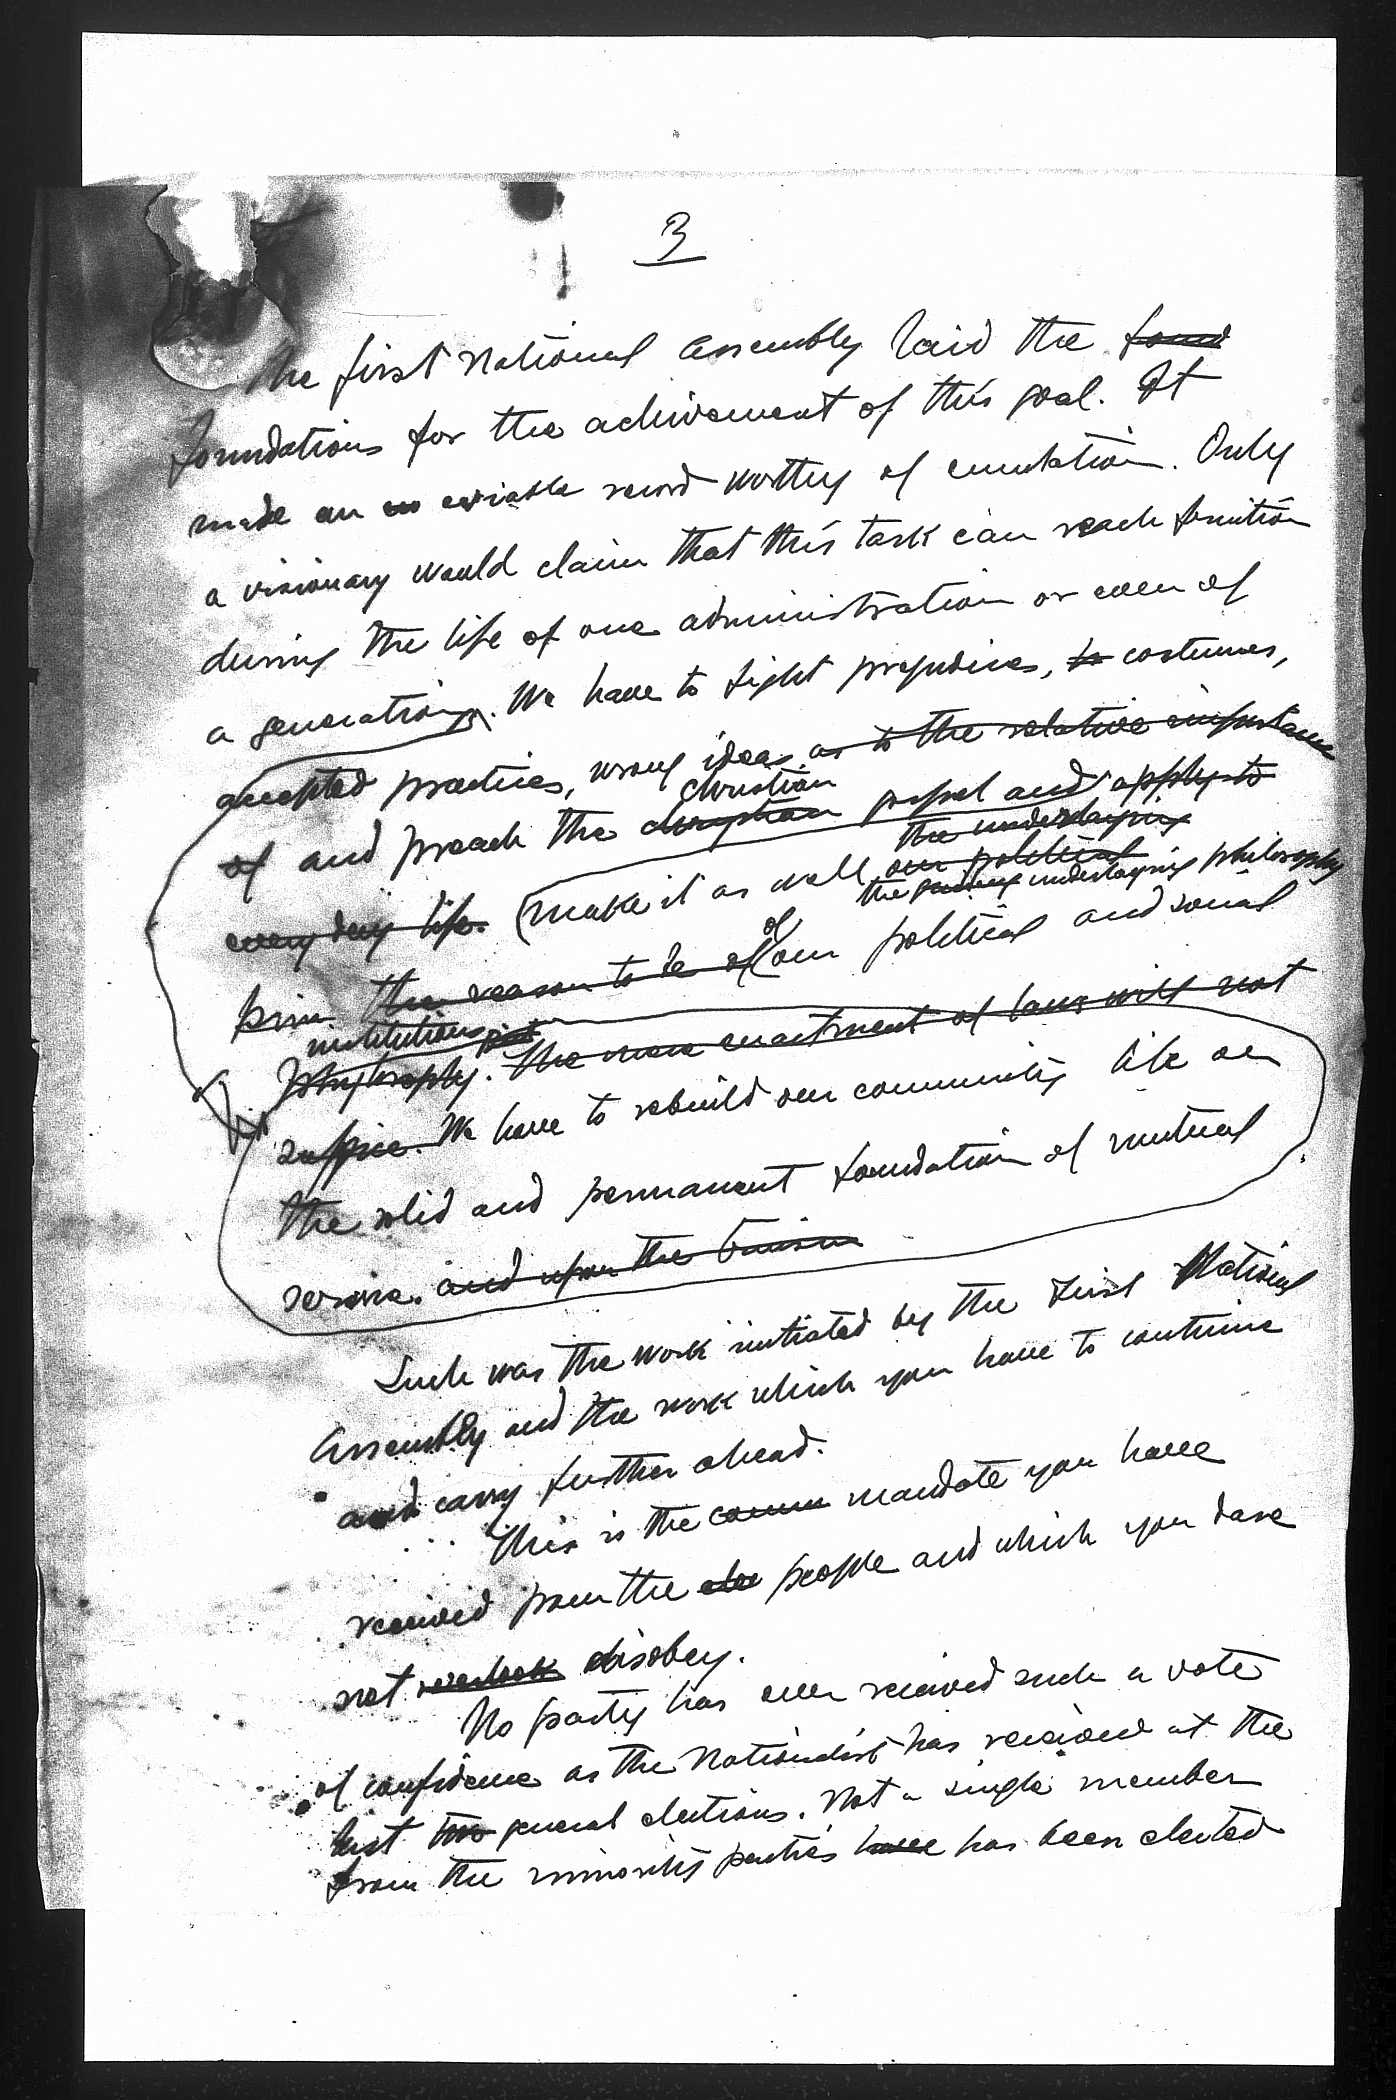 3
The first National Assembly laid the found
foundations for the achivement of this goal. It
made an en enviable record worthy of emulation. Only
a visionary would claim that this task can reach fruition
during the life of one administration or even of
a generation. We have to fight prejudices, costumes,
accepted practices, wrong ideas as to the relative importance
christian
of and preach the chryptian gospel and apply to
the underlaying
every day life. make it as well our political
the underlaying philosophy
of
the reason to be of our political and social
institutions
phylosophy. The mere enactment of laws will not
suffice. We have to rebuild our community life on
the solid and permanent foundation of mutual
service. and upon the
Such was the work initiated by the First National
Assembly and the work which you have to continue
and carry further ahead.
This is the comm mandate you have
received from the ele people and which you dare
not overlook disobey.
No party has ever received such a vote
of confidence as the Nationalist has received at the
last two general elections. Not a single member
from the minority parties have has been elected